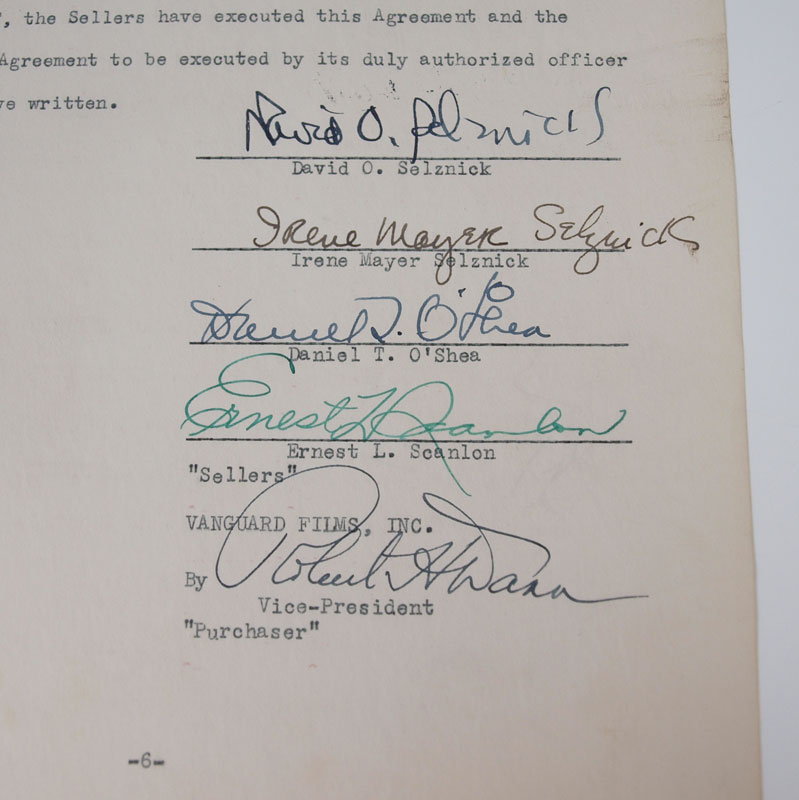 ", the Sellers have executed this Agreement and the
Agreement to be executed by its duly authorized officer
ve written.
David O. Selznick
David O. Selznick
Irene Mayer Selznick
Irene Mayer Selznick
Daniel T. O'Shea
Daniel T. O'Shea
Ernest L. Scanlon
Ernest L. Scanlon
"Sellers"
VANGUARD FILMS, INC.
By Robert H Dann
Vice-President
"Purchaser"
-6-